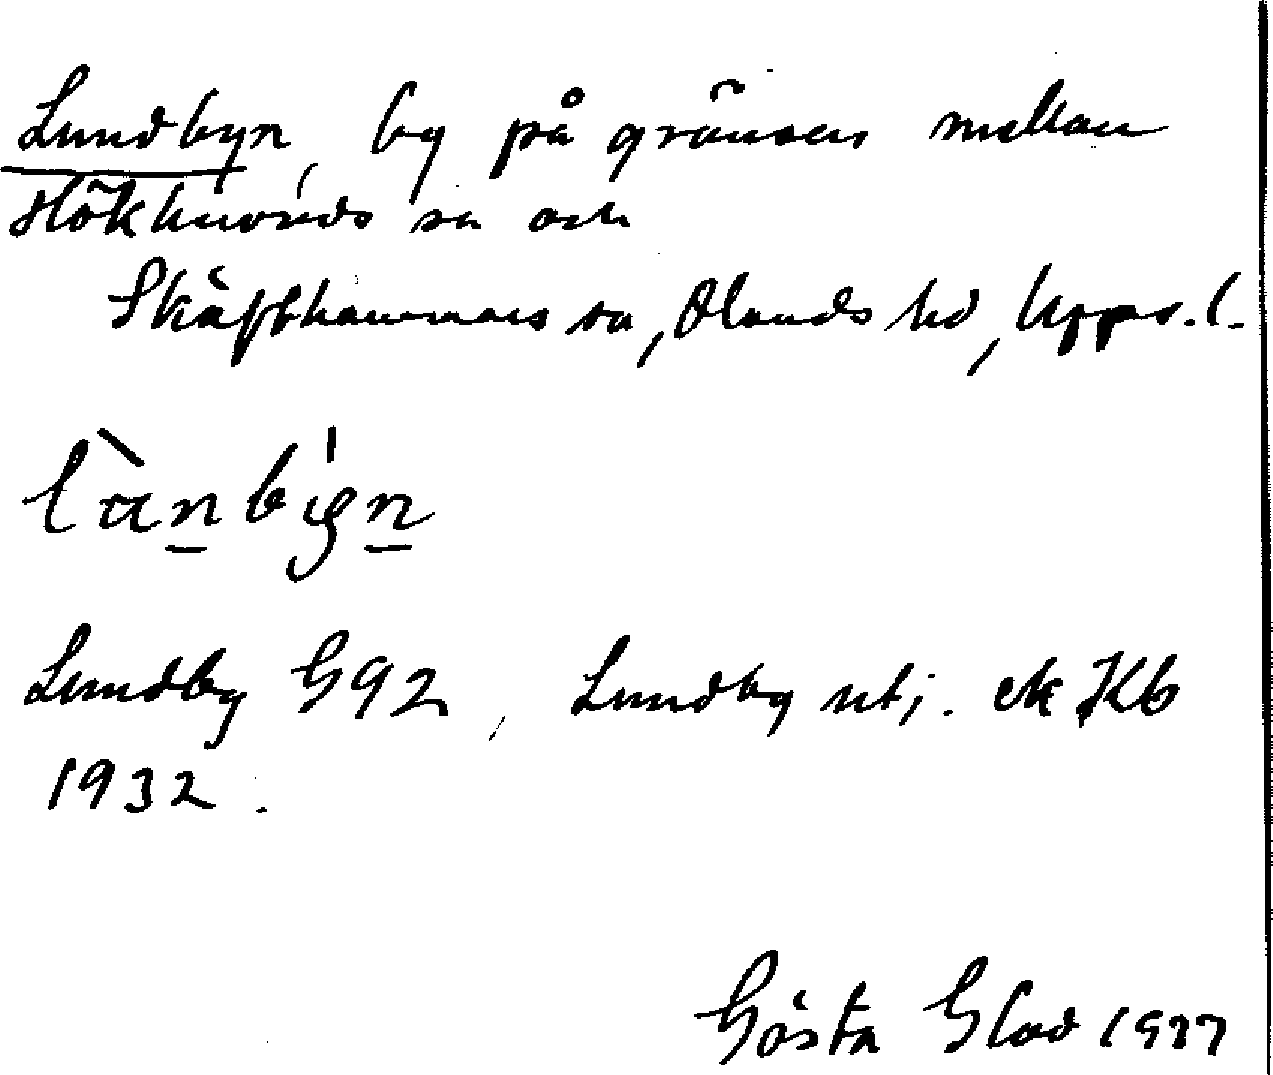 Lundbyn, by på gränsen mellan
Hökhuvuds sn och
Skäfthammars sn, Olands hd, Upps. l.
Lundby G92, Lundby utj. ek Kb
1932.
Gösta Glad 1937